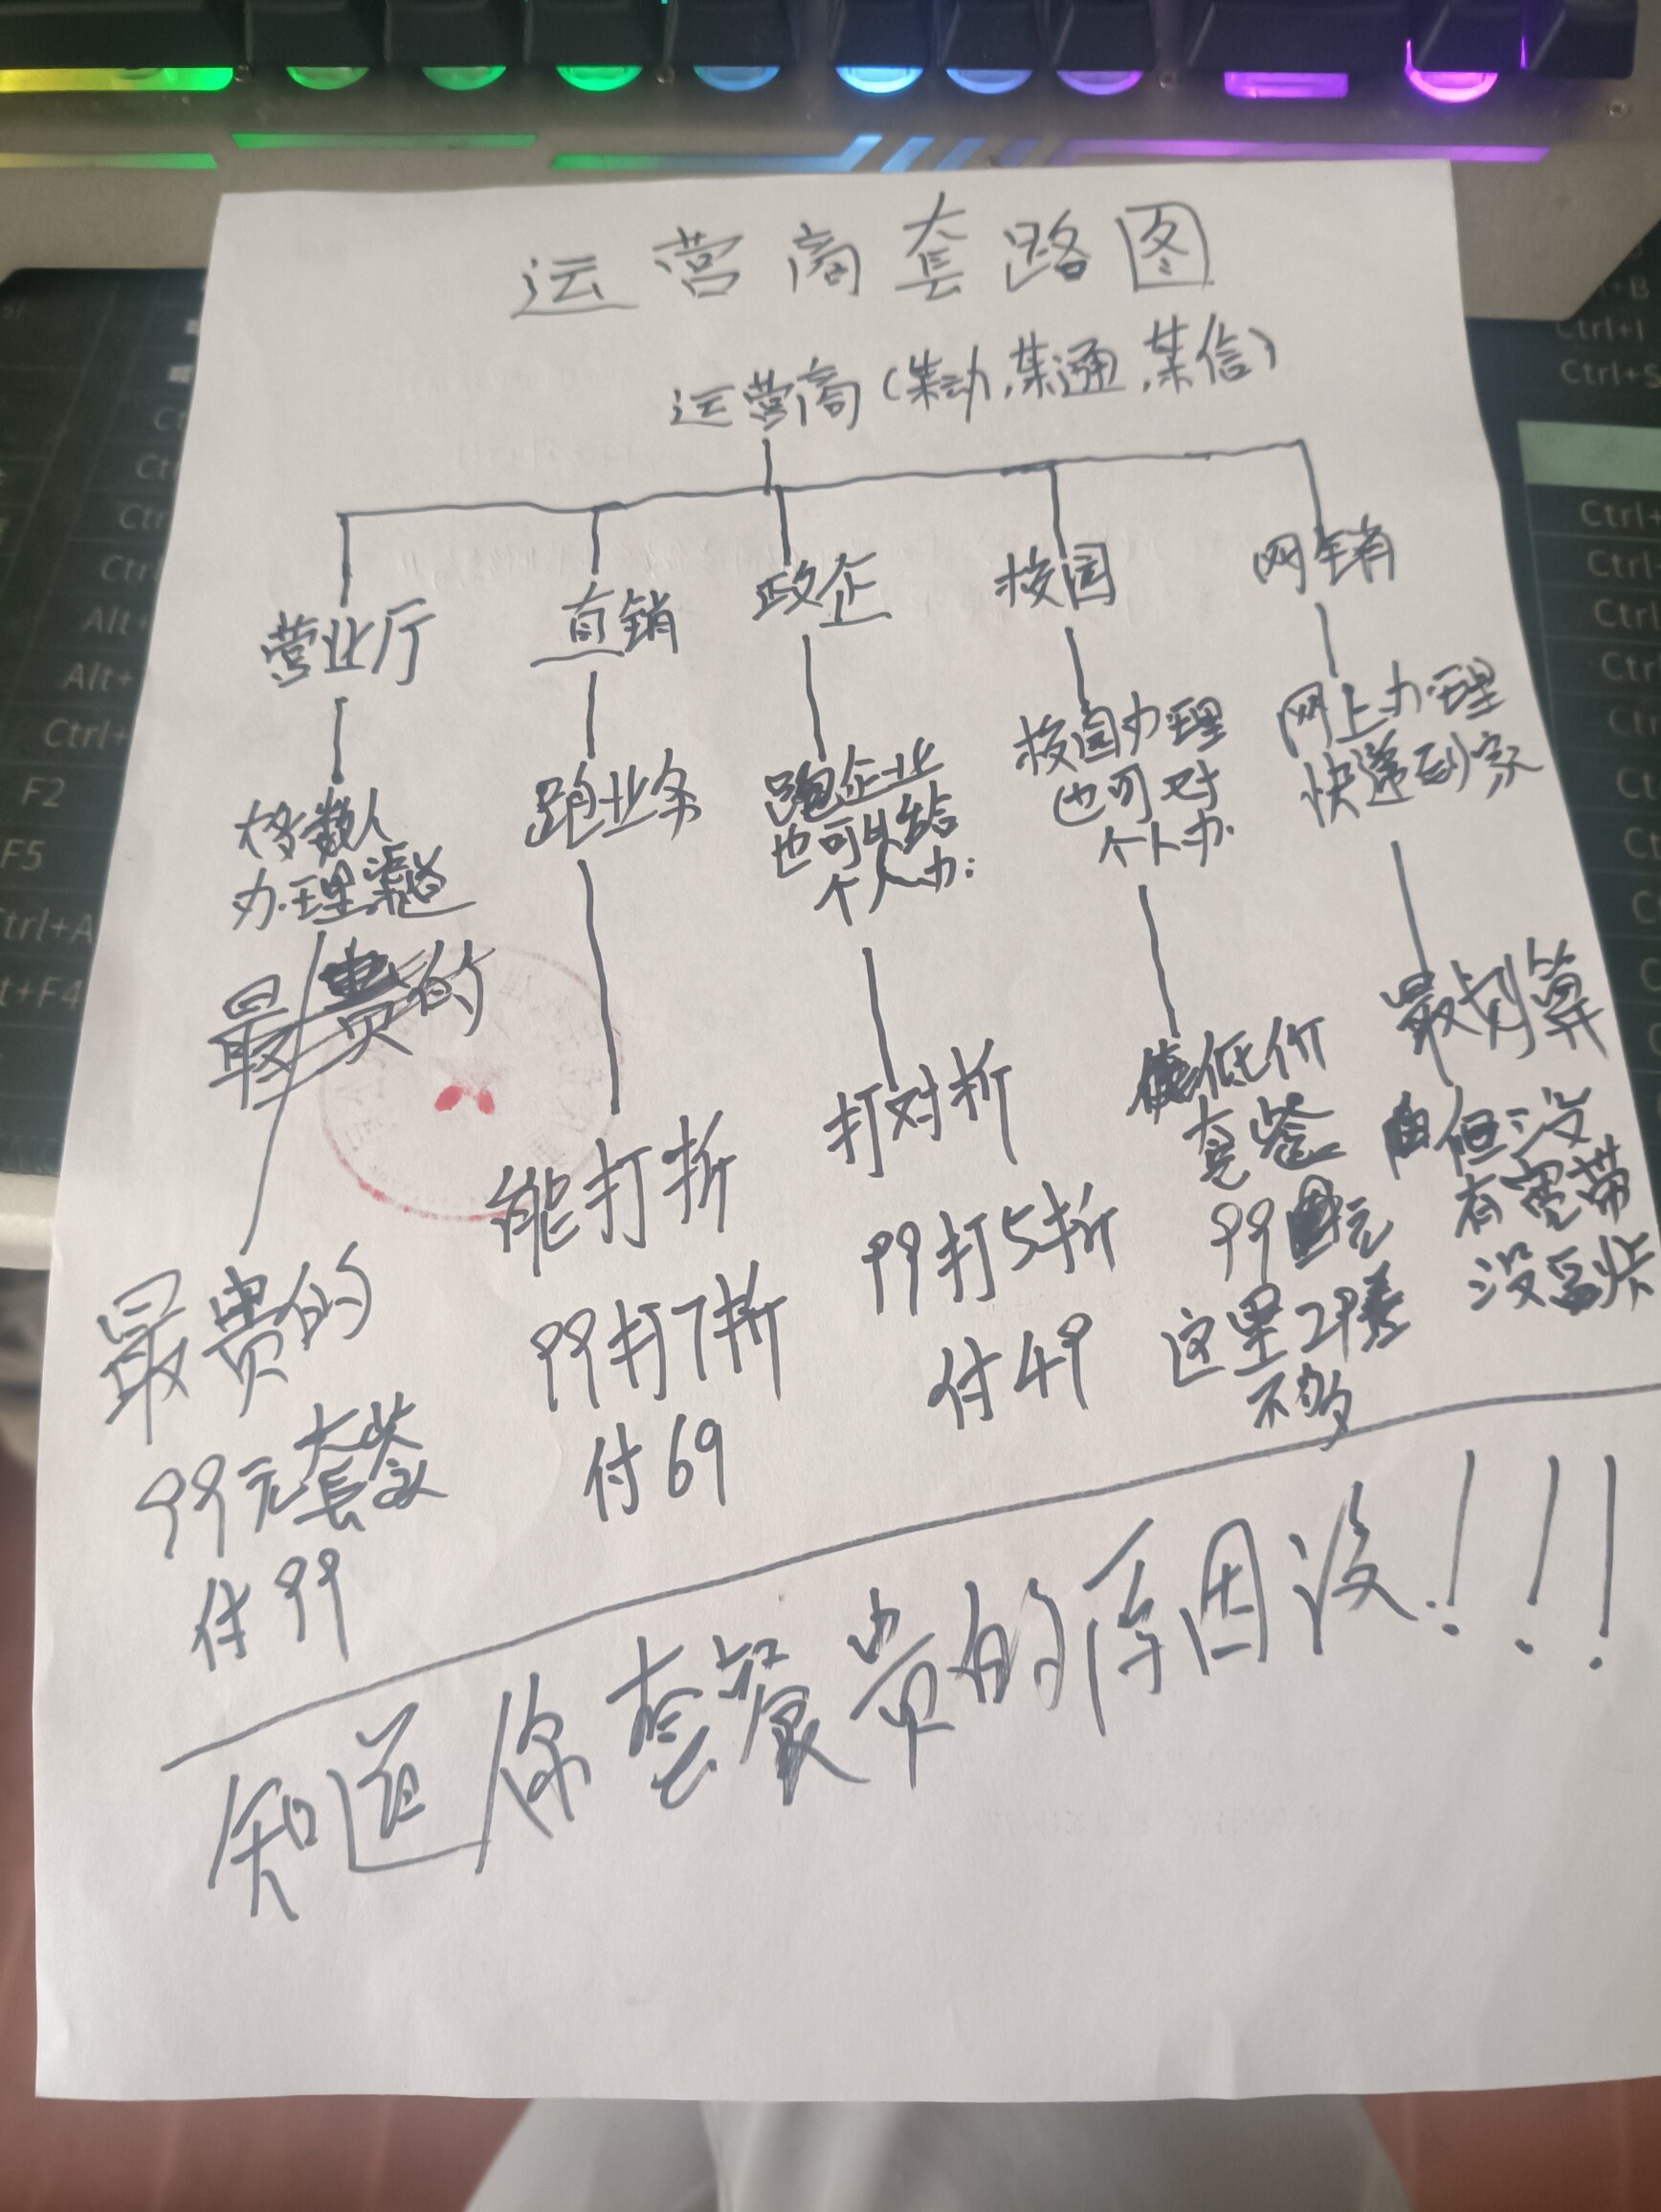 运营商套路图
运营商(某动,某通,某信)
营业厅
多数人
办理渠道
最贵的
最贵的
99元套餐
付99
直销
跑业务
能打折
99打7折
付69
政企
跑企业
也可以给
个人办
打对折
99打5折
付49
校园
校园办理
也可对
个人办
低价
套餐
99元
这里29差
不多
网销
网上办理
快递到家
最划算
但没
有宽带
没副卡
知道你套餐贵的原因没!!!
Ctrl+B
Ctrl+I
Ctrl+S
Alt+
Alt+
Ctrl+
F2
F5
Ctrl+A
Alt+F4